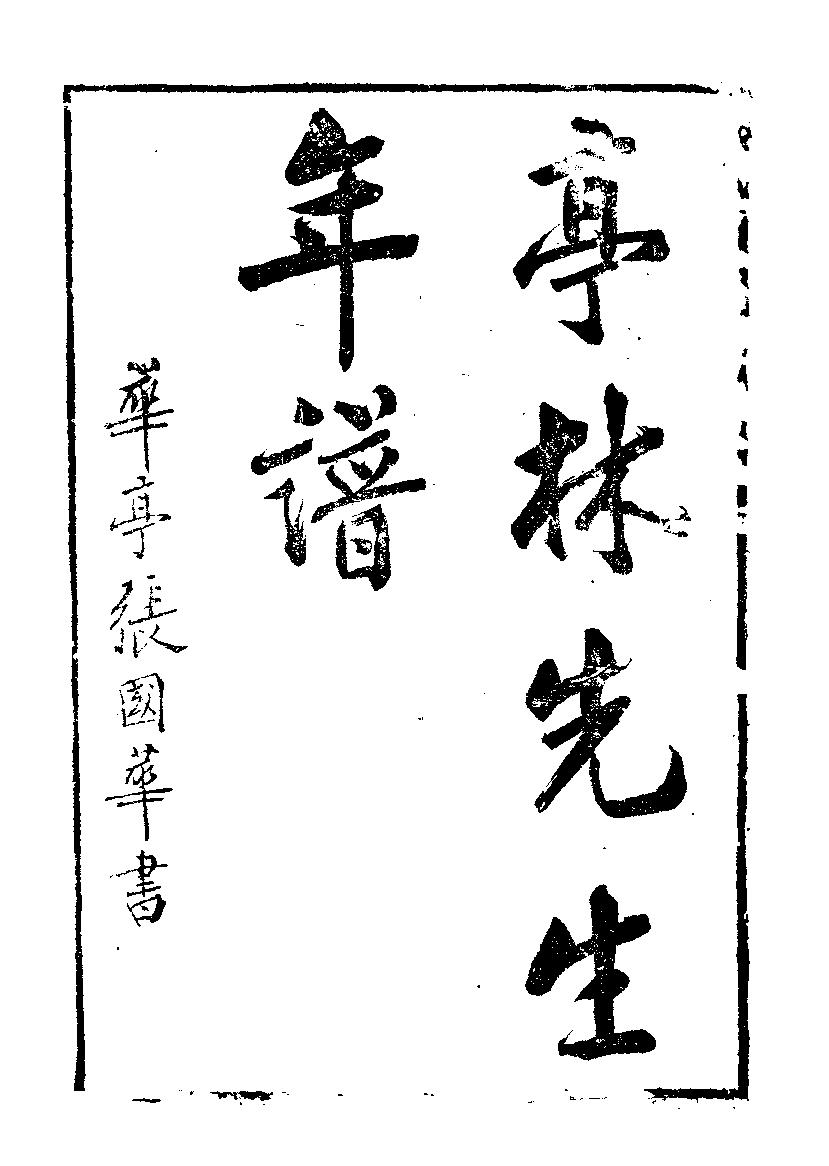 亭林先生
年譜
華亭張國華書